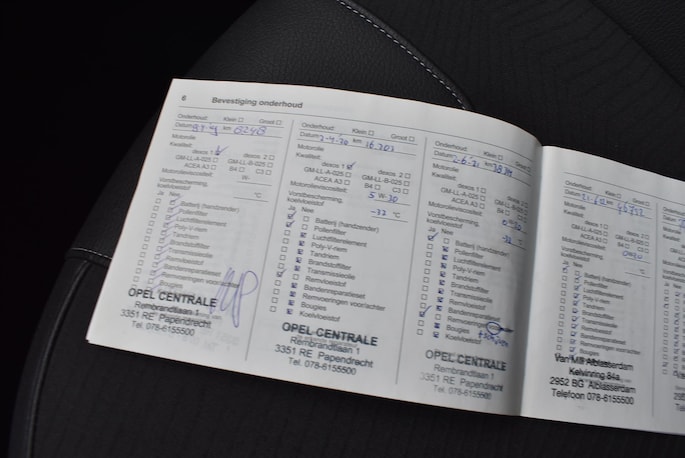 6 Bevestiging onderhoud
Onderhoud: Klein ☐ Groot ☐
Datum km
Motorolie
Kwaliteit: dexos 1 ☐ dexos 2 ☐
GM-LL-A-025 ☐ GM-LL-B-025 ☐
ACEA A3 ☐ B4 ☐ C3 ☐
Motorolieviscositeit: W-
Vorstbescherming,
koelvloeistof °C
Ja Nee
Batterij (handzender)
Pollenfilter
Luchtfilterelement
Poly-V-riem
Tandriem
Brandstoffilter
Transmissieolie
Remvloeistof
Bandenreparatieset
Remvoeringen voor/achter
Bougies
OPEL CENTRALE
Rembrandtlaan 1
3351 RE Papendrecht
Tel. 078-6155500
Onderhoud: Klein ☐ Groot ☐
Datum 2-4-20 km 16.203
Motorolie
Kwaliteit:
dexos 1 dexos 2 ☐
GM-LL-A-025 ☐ GM-LL-B-025 ☐
ACEA A3 ☐ B4 ☐ C3 ☐
Motorolieviscositeit: 5 W-30
Vorstbescherming,
koelvloeistof -32 °C
Ja Nee
Batterij (handzender)
Pollenfilter
Luchtfilterelement
Poly-V-riem
Tandriem
Brandstoffilter
Transmissieolie
Remvloeistof
Bandenreparatieset
Remvoeringen voor/achter
Bougies
Koelvloeistof
OPEL CENTRALE
Rembrandtlaan 1
3351 RE Papendrecht
Tel. 078-6155500
Onderhoud: Klein ☐ Groot ☐
Datum 2-6-21 km
Motorolie
Kwaliteit:
dexos 1 dexos 2 ☐
GM-LL-A-025 ☐ GM-LL-B-025 ☐
ACEA A3 ☐ B4 ☐ C3 ☐
Motorolieviscositeit:
Vorstbescherming,
koelvloeistof -32 °C
Ja Nee
Batterij (handzender)
Pollenfilter
Luchtfilterelement
Poly-V-riem
Tandriem
Brandstoffilter
Transmissieolie
Remvloeistof
Bandenreparatieset
Bougies
Koelvloeistof
OPEL CENTRALE
Rembrandtlaan 1
3351 RE Papendrecht
Tel. 078-6155500
Onderhoud: Klein ☐ Groot ☐
Datum km
Motorolie
Kwaliteit:
dexos 1 dexos 2 ☐
GM-LL-A-025 ☐ GM-LL-B-025 ☐
ACEA A3 ☐ B4 ☐ C3 ☐
Motorolieviscositeit:
Vorstbescherming,
koelvloeistof °C
Ja Nee
Batterij (handzender)
Pollenfilter
Luchtfilterelement
Poly-V-riem
Tandriem
Brandstoffilter
Transmissieolie
Remvloeistof
Bandenreparatieset
Van Mill Alblasserdam
Kelvinring 84a
2952 BG Alblasserdam
Telefoon 078-6155500